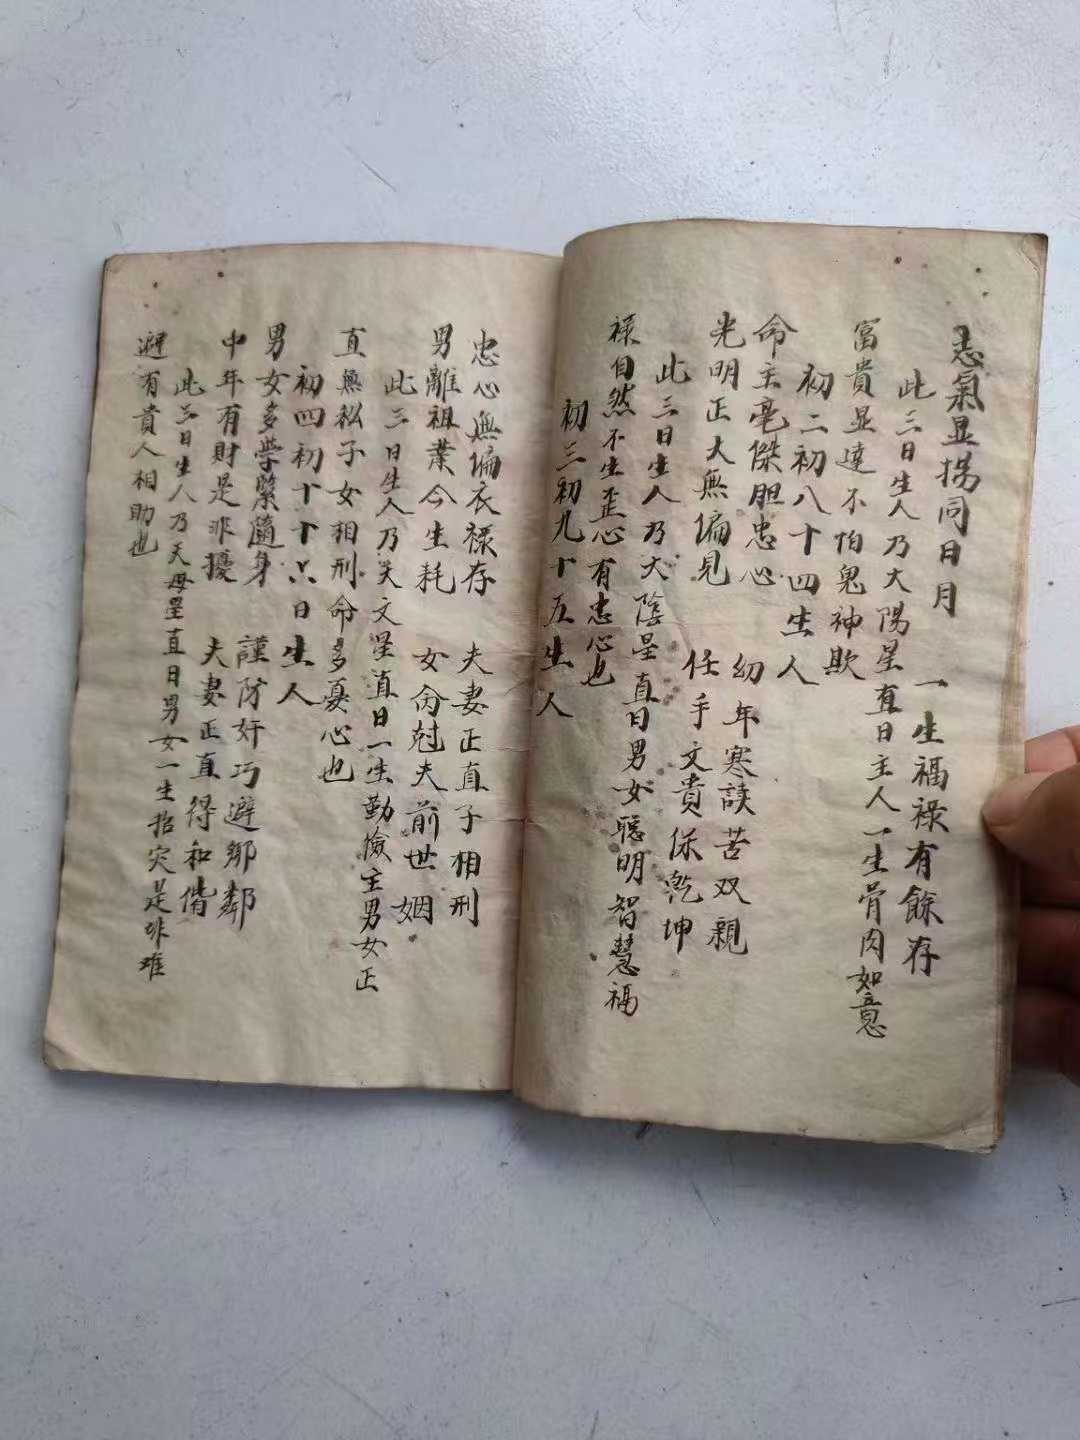 志氣显揚同日月　一生福禄有餘存
此三日生人乃大陽星直日主人一生骨肉如意
富貴显達不怕鬼神欺
初二初八十四生人
命主毫傑胆忠心　幼年寒讀苦双親
光明正大無偏見　任手文貴保乾坤
此三日生人乃大陰星直日男女聪明智慧福
禄自然不生歪心有忠心也
初三初九十五生人
忠心無偏衣禄存　夫妻正直子相刑
男離祖業今生耗　女命尅夫前世姻
此三日生人乃天文星直日一生勤儉主男女正
直無私子女相刑命多憂心也
初四初十十六日生人
男女多學緊隨身　謹防奸巧避鄉鄰
中年有財是非擾　夫妻正直得和偕
此三日生人乃天母星直日男女一生招灾是非难
避有貴人相助也